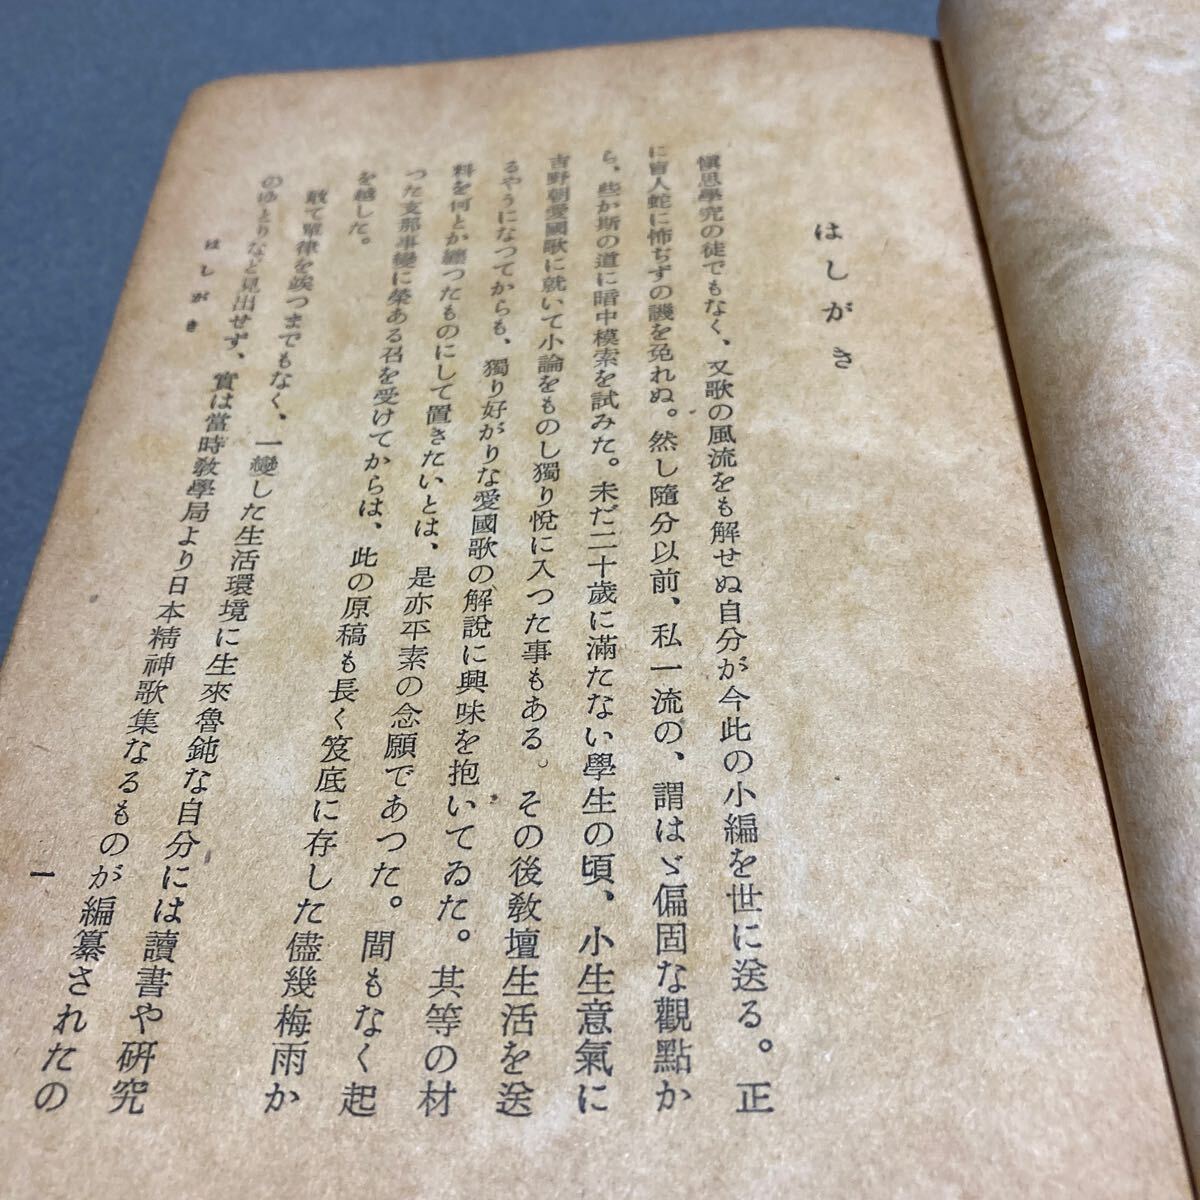 はしがき
愼思學究の徒でもなく、又歌の風流をも解せぬ自分が今此の小編を世に送る。正
に盲人蛇に怖ぢずの譏を免れぬ。然し隨分以前、私一流の、謂はゞ偏固な觀點か
ら、些か斯の道に暗中模索を試みた。未だ二十歲に滿たない學生の頃、小生意氣に
吉野朝愛國歌に就いて小論をものし獨り悅に入つた事もある。その後敎壇生活を送
るやうになつてからも、獨り好がりな愛國歌の解說に興味を抱いてゐた。其等の材
料を何とか纏つたものにして置きたいとは、是亦平素の念願であつた。間もなく起
つた支那事變に榮ある召を受けてからは、此の原稿も長く笈底に存した儘幾梅雨か
を越した。
敢て軍律を竢つまでもなく、一變した生活環境に生來魯鈍な自分には讀書や硏究
のゆとりなど見出せず、實は當時敎學局より日本精神歌集なるものが編纂されたの
はしがき
一